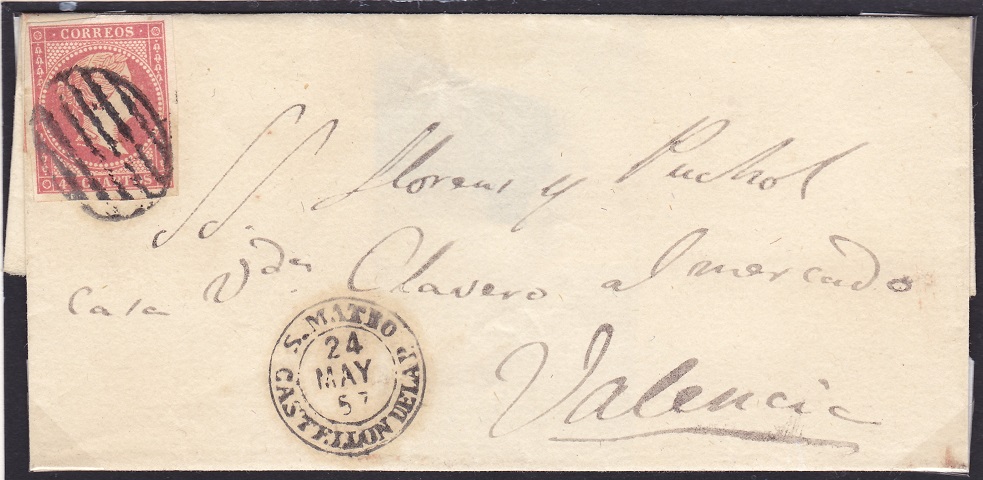 CORREOS
4 CUARTOS
SS. Llorens y Puchol
casa Vda. Clavero al mercado
Valencia
S. MATEO
24
MAY
57
CASTELLON DE LA P.